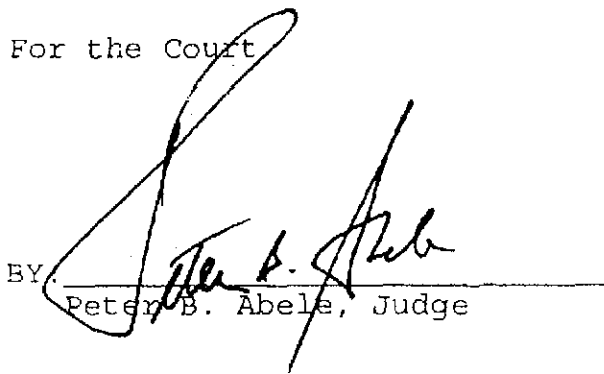 For the Court
BY: Peter B. Abele
Peter B. Abele, Judge